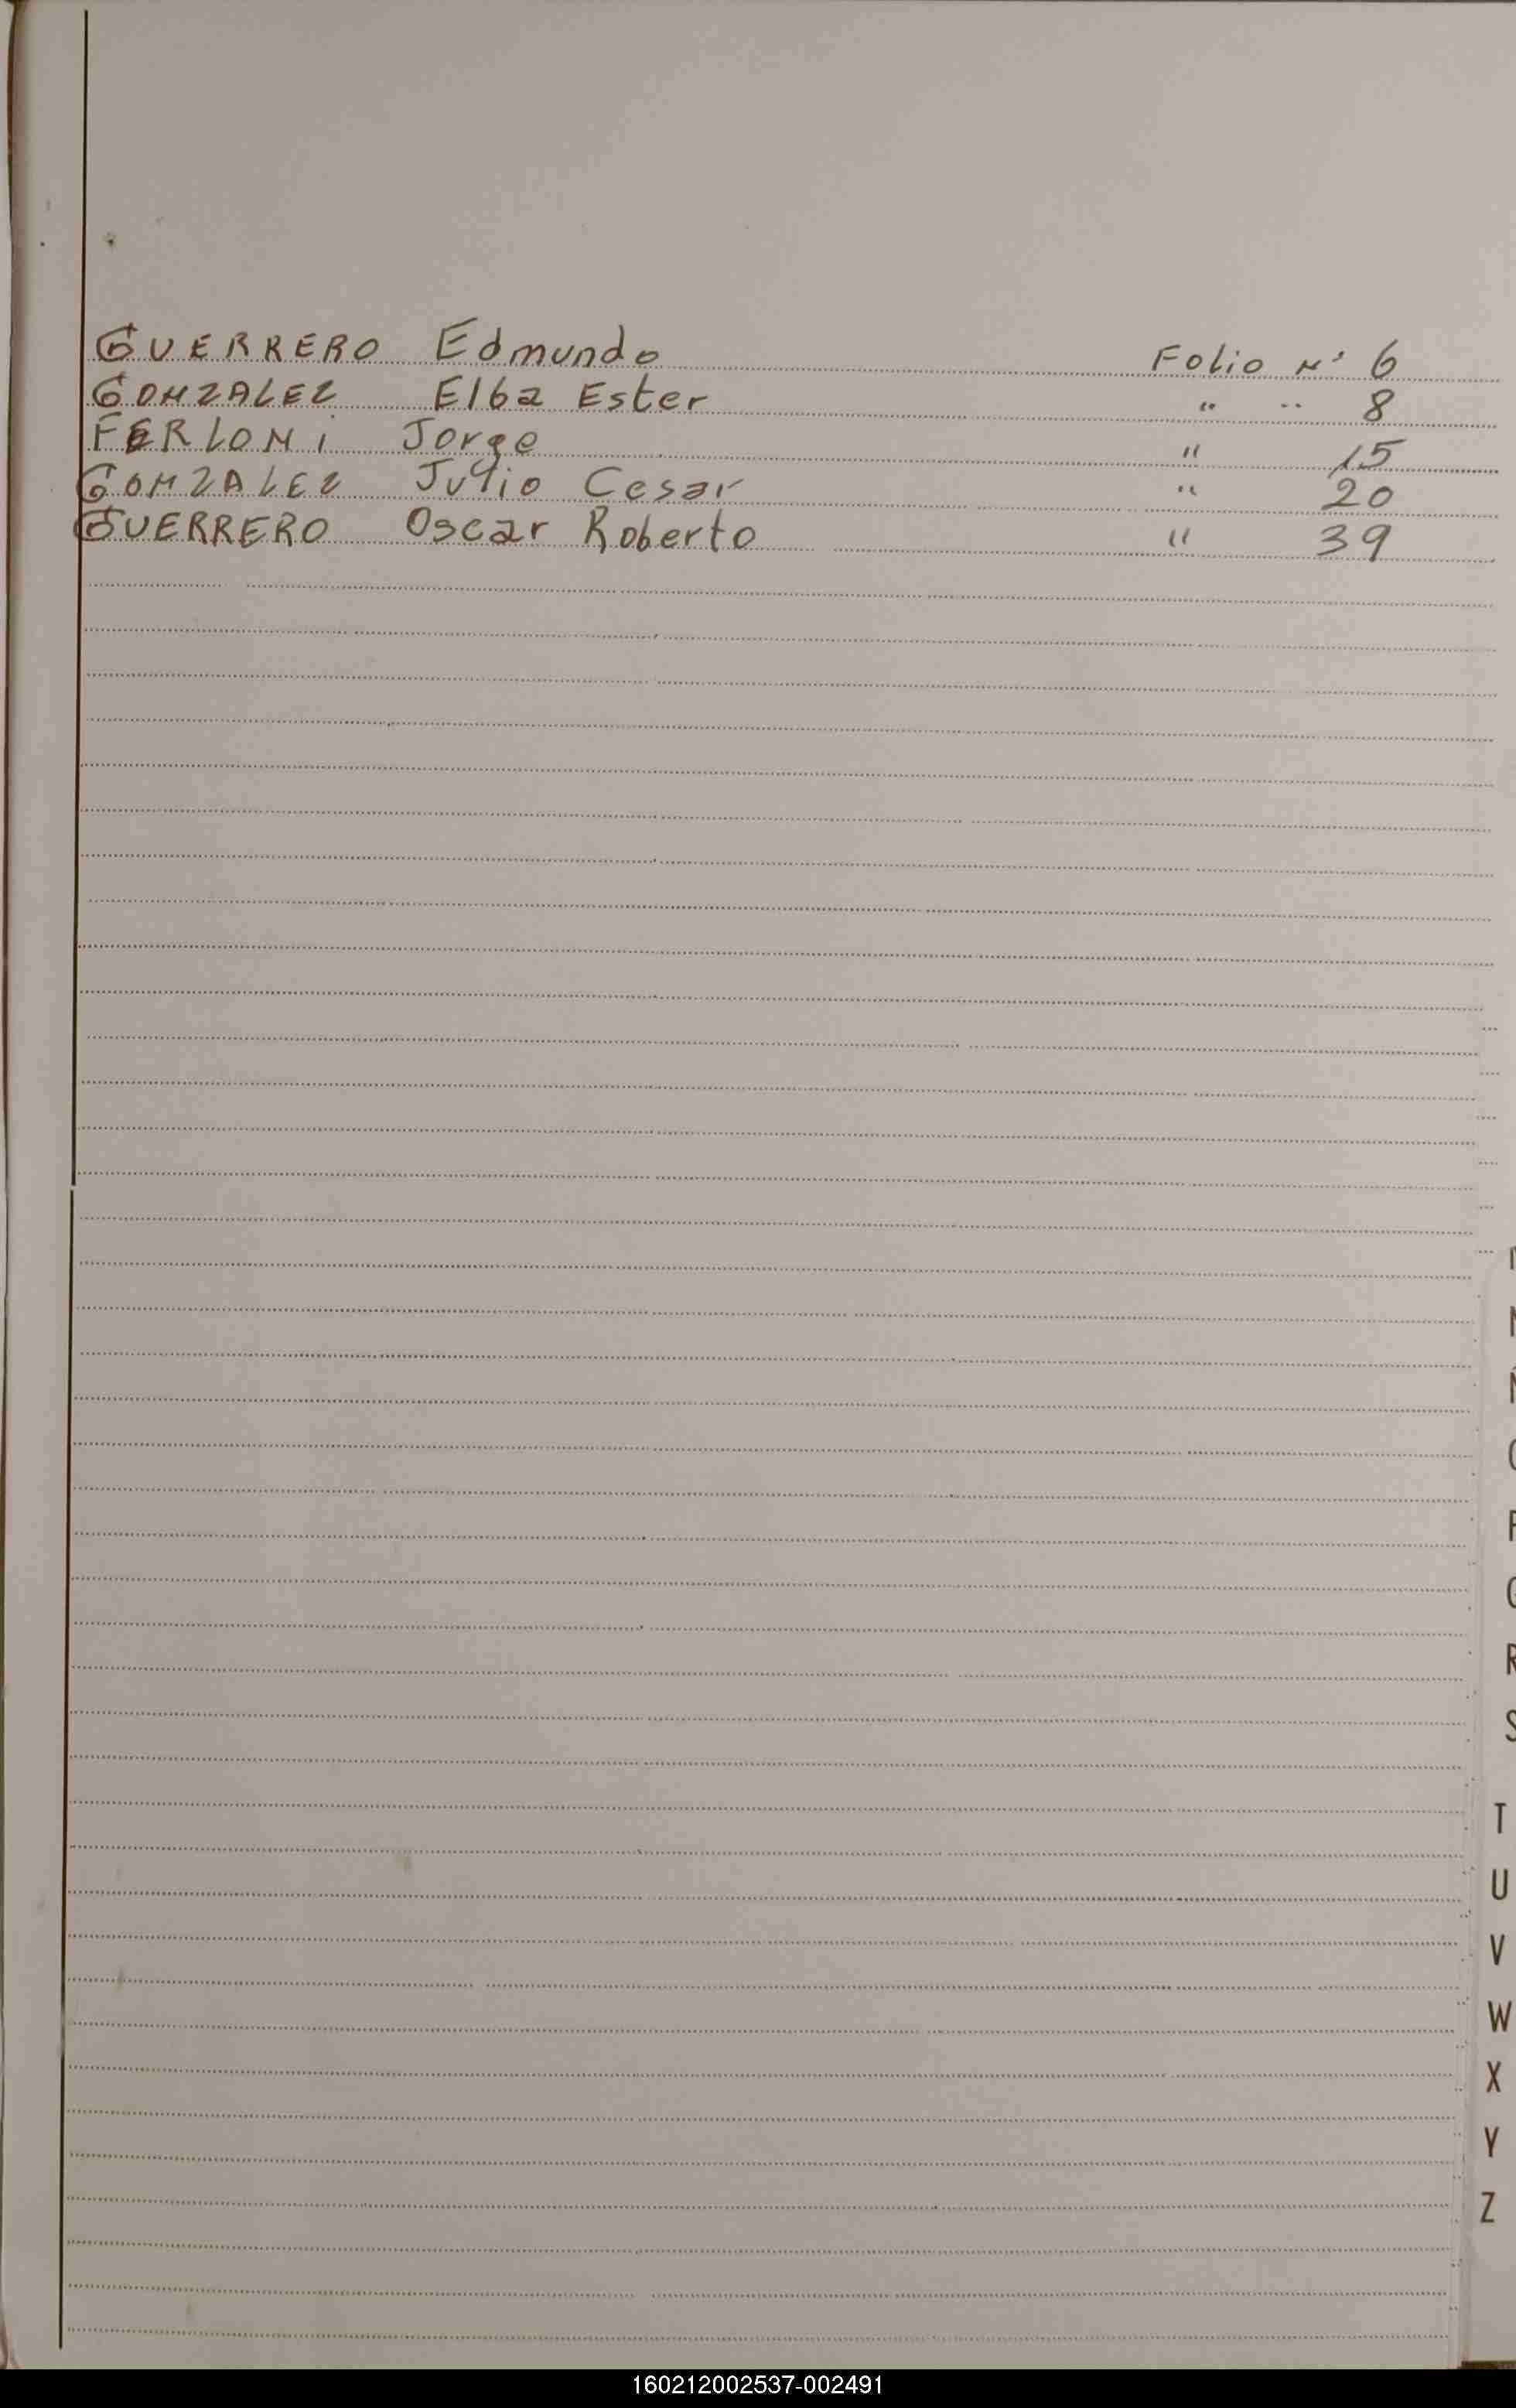 GUERRERO Edmundo Folio N° 6
GONZALEZ Elba Ester " " 8
FERLONi Jorge " 15
GONZALEZ Julio Cesar " 20
GUERRERO Oscar Roberto " 39
R
S
T
U
V
W
X
Y
Z
160212002537-002491